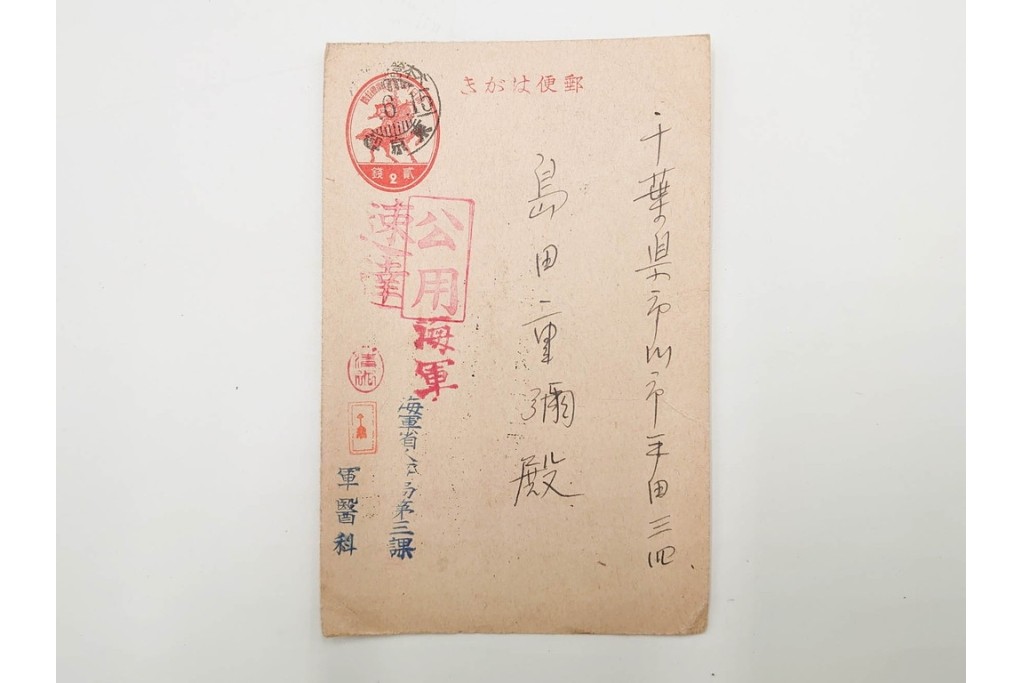 きがはは便郵
千葉県市川市平田三四
島田二重彌殿
6.15
東京中
貳2錢
公用
速達
海軍
海軍省人事局第三課
軍醫科